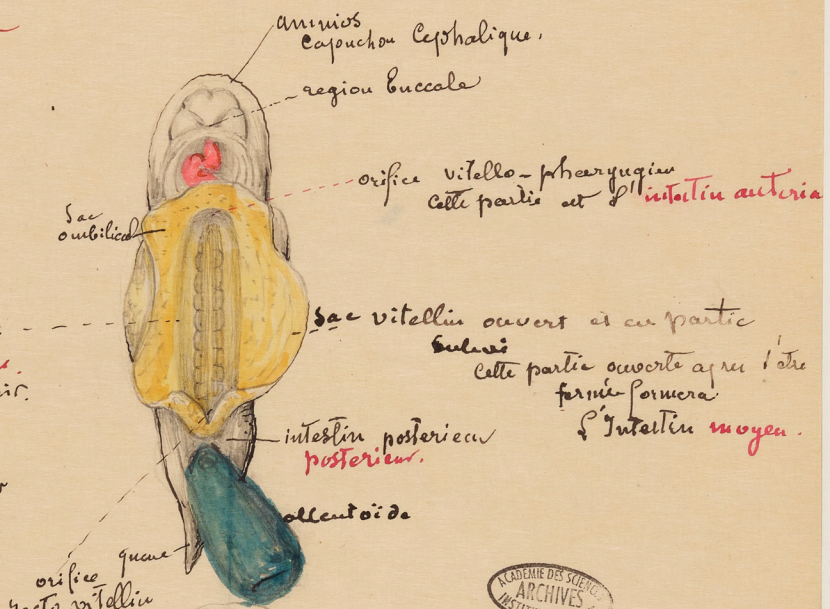 amnios
Capouchon Cephalique.
region buccale
orifice vitello-pharyngien
cette partie est l'intestin anteri
Sac
ombilical
Sac vitellin ouvert et en partie
enlevé
Cette partie ouverte apres s'être
fermé formera
l'Intestin moyen.
intestin posterieur
posterieur.
allentoïde
queue
orifice
recto vitellin
ACADEMIE DES SCIENCES
ARCHIVES
INSTIT